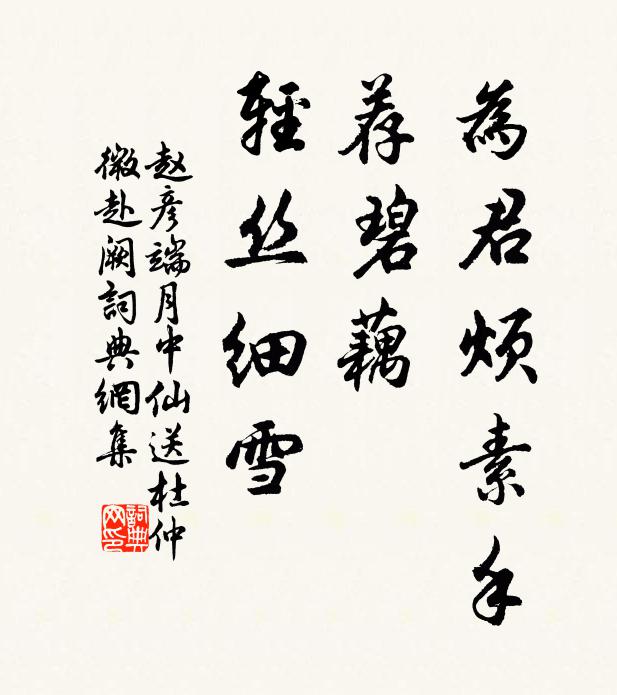 為君烦素手
荐碧藕
輕丝细雪
赵彦端月中仙送杜仲
微赴阙詞典網集
詞典
网印